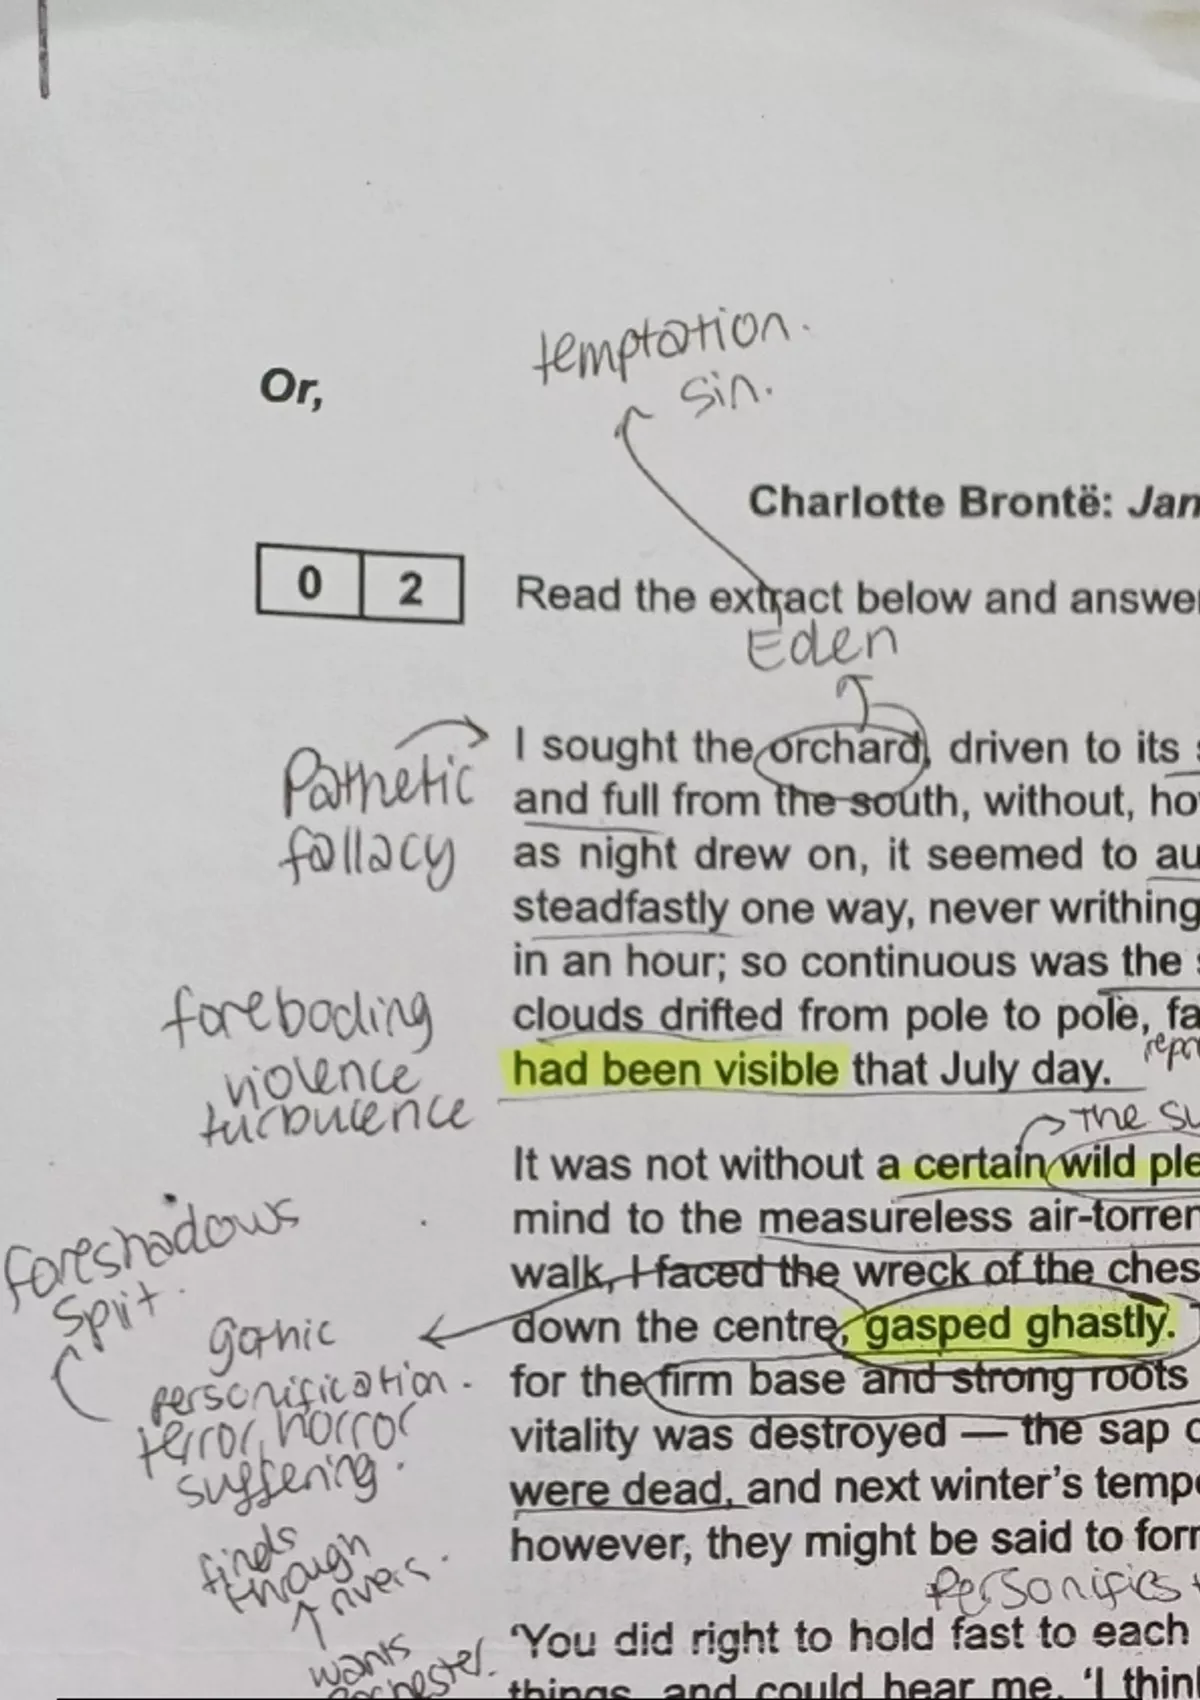 temptation.
sin.
Or,
Charlotte Brontë: Jan
0 2
Read the extract below and answe
Eden
I sought the orchard, driven to its
Pathetic
fallacy
and full from the south, without, ho
as night drew on, it seemed to au
steadfastly one way, never writhing
in an hour; so continuous was the
foreboding
violence
turbulence
clouds drifted from pole to pole, fa
had been visible that July day.
the su
It was not without a certain wild ple
mind to the measureless air-torren
foreshadows
split.
walk, I faced the wreck of the ches
down the centre, gasped ghastly.
gothic
personification.
terror, horror
suffering.
for the firm base and strong roots
vitality was destroyed — the sap
were dead, and next winter's tempe
however, they might be said to form
finds
through
rivers.
Personifies
wants
'You did right to hold fast to each
things, and could hear me. 'I think